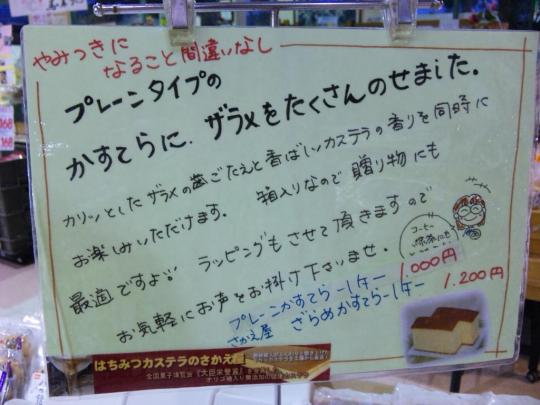 やみつきに
なること間違いなし
プレーンタイプの
かすてらに、ザラメをたくさんのせました。
カリッとしたザラメの歯ごたえと香ばしいカステラの香りを同時に
お楽しみいただけます。 箱入りなので贈り物にも
最適ですよ!! ラッピングもさせて頂きますので
お気軽にお声をお掛け下さいませ。
コーヒー
プレーンかすてら一斤 1.000円
さかえ屋 ざらめかすてら一斤 1.200円
はちみつカステラのさかえ屋
全国菓子博覧会『大臣栄誉賞』を